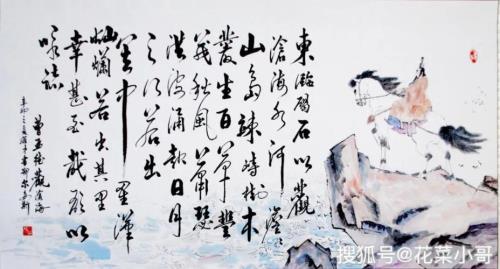 東臨碣石以觀
滄海水何澹澹
山島竦峙樹木
叢生百草豐
茂秋風蕭瑟
洪波涌起日月
之行若出
其中星漢
燦爛若出其里
幸甚至哉歌以
詠志
曹孟德觀滄海
辛卯之夏
搜狐号@花菜小哥